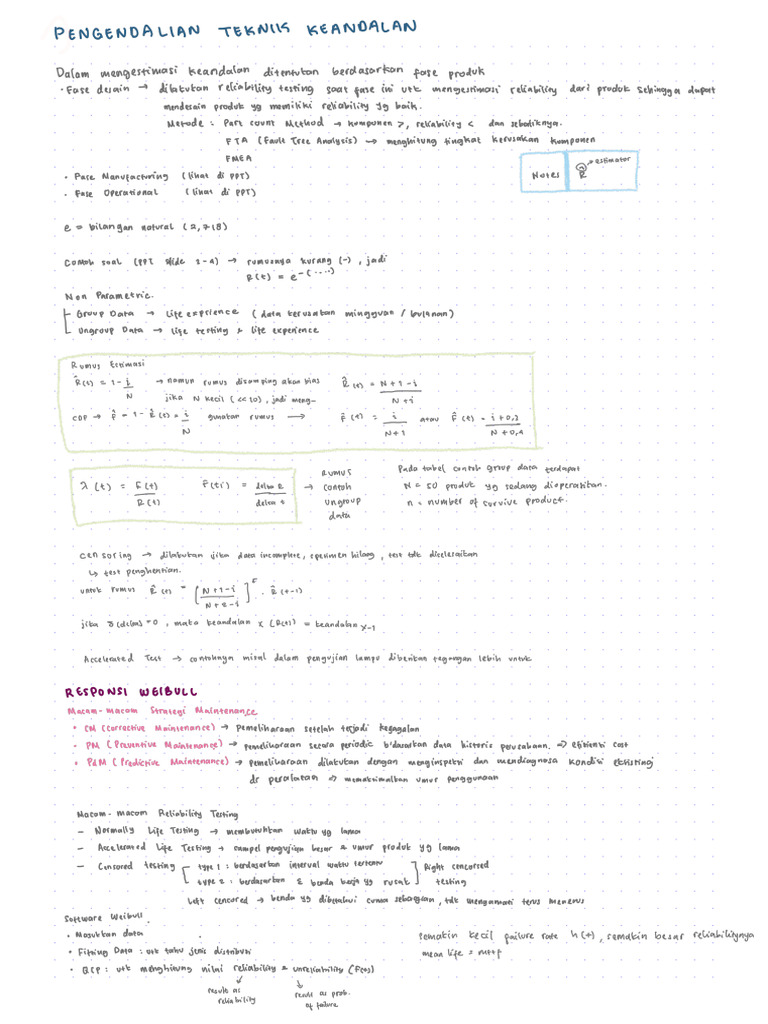 PENGENDALIAN TEKNIK KEANDALAN
Dalam mengestimasi keandalan ditentukan berdasarkan fase produk
• Fase desain → dilakukan reliability testing saat fase ini utk mengestimasi reliability dari produk sehingga dapat
mendesain produk yg memiliki reliability yg baik.
Metode : Part count Method → komponen >, reliability < dan sebaliknya.
FTA (Fault Tree Analysis) → menghitung tingkat kerusakan komponen
FMEA
Notes
R̂ → estimator
• Fase Manufacturing (lihat di PPT)
• Fase Operational (lihat di PPT)
e = bilangan natural (2,718)
Contoh soal (PPT slide 2-4) → rumusnya kurang (-), jadi
R(t) = e^-(....)
Non Parametric.
Group Data → life exprience (data kerusakan mingguan / bulanan)
Ungroup Data → life testing + life experience
Rumus Estimasi
R̂(t) = 1 - i/N → namun rumus disamping akan bias R̂(t) = N+1-i / N+1
jika N kecil (<<10), jadi meng-
CDF → F̂ = 1 - R̂(t) = i/N gunakan rumus → F̂(t) = i / N+1 atau F̂(t) = i-0,3 / N+0,4
λ(t) = f(t) / R(t) f̂(ti) = delta R / delta t → Rumus contoh ungroup data
Pada tabel contoh group data terdapat
N = 50 produk yg sedang dioperasikan.
n = number of survive product.
censoring → dilakukan jika data incomplete, spesimen hilang, test tdk diselesaikan
↳ test penghentian.
untuk rumus R̂(t) = [N+1-i / N+2-i]^δ . R̂(t-1)
jika δ (delta) = 0, maka keandalan x (R(t)) = keandalan x-1
Accelerated Test → contohnya misal dalam pengujian lampu diberikan tegangan lebih untuk
RESPONSI WEIBULL
Macam-macam Strategi Maintenance
• CM (Corrective Maintenance) → pemeliharaan setelah terjadi kegagalan
• PM (Preventive Maintenance) → pemeliharaan secara periodic b'dasarkan data historis perusahaan. ⇒ efisiensi cost
• PdM (Predictive Maintenance) → pemeliharaan dilakukan dengan menginspeksi dan mendiagnosa kondisi eksisting
dr peralatan ⇒ memaksimalkan umur penggunaan
Macam-macam Reliability Testing
- Normally Life Testing → membutuhkan waktu yg lama
- Accelerated Life Testing → sampel pengujian besar & umur produk yg lama
- Censored testing type 1 : berdasarkan interval waktu tertentu Right cencorred
type 2 : berdasarkan Σ benda kerja yg rusak testing
Left cencured → benda yg diketahui cuma sebagian, tdk mengamati terus menerus
Software Weibull
• Masukkan data
• Fitting Data : utk tahu jenis distribusi
• QCP : utk menghitung nilai reliability & unreliability (F(t))
result as
reliability
result as prob.
of failure
semakin kecil failure rate h(t), semakin besar reliabilitynya
mean life = mttf